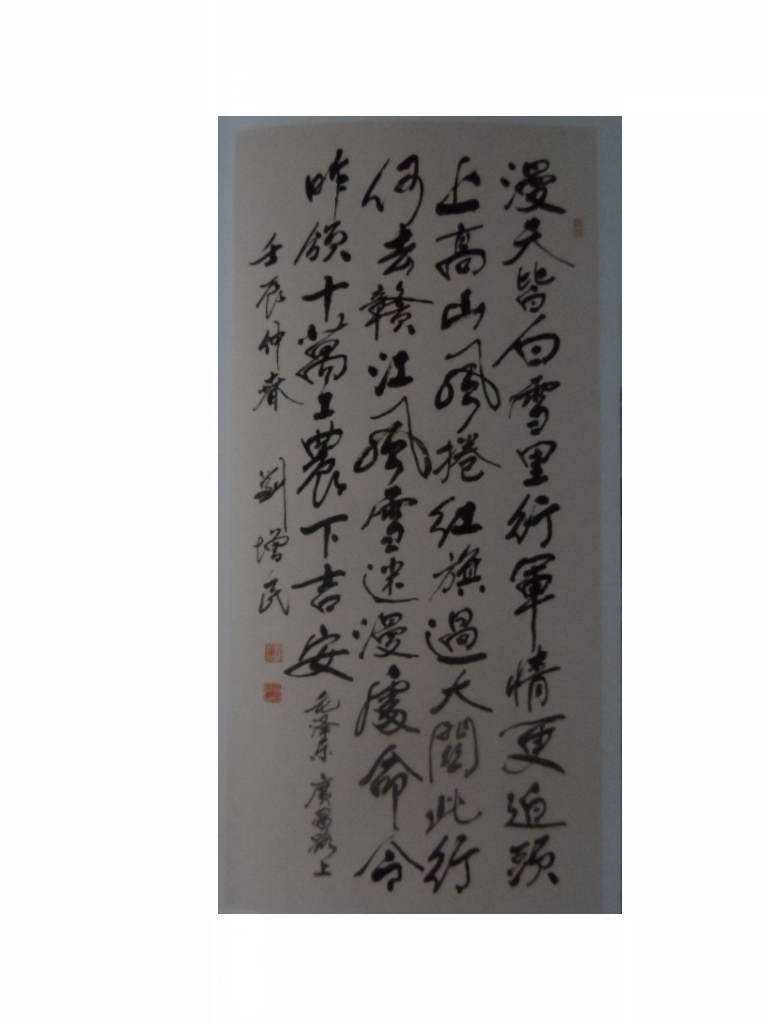 漫天皆白雪里行軍情更迫頭
上高山風捲紅旗過大關此行
何去贛江風雪迷漫處命令
昨頒十萬工農下吉安
毛澤东 廣昌路上
壬辰仲春 劉增民